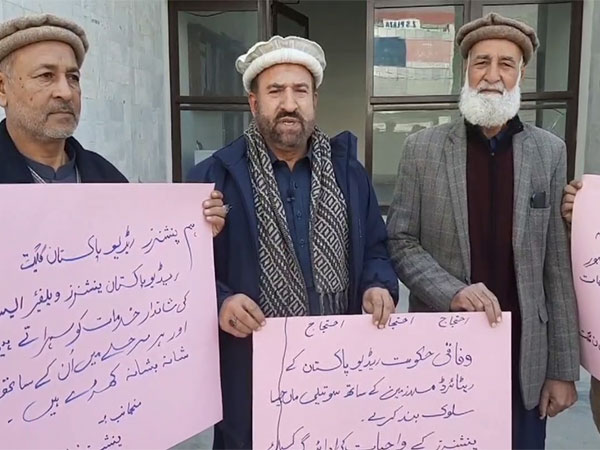 Z.S PLAZA
ہم پنشنرز ریڈیو پاکستان گلگت
ریڈیو پاکستان پنشنرز ویلفیئر
کی شاندار خدمات کو سراہتے ہیں
اور ہر مرحلے میں اُن کے ساتھ
شانہ بشانہ کھڑے ہیں۔
منجانب:
پنشنرز
احتجاج احتجاج احتجاج
وفاقی حکومت ریڈیو پاکستان کے
ریٹائرڈ ملازمین کے ساتھ سوتیلی ماں جیسا
سلوک بند کرے۔
پنشنرز کے واجبات کی ادائیگی